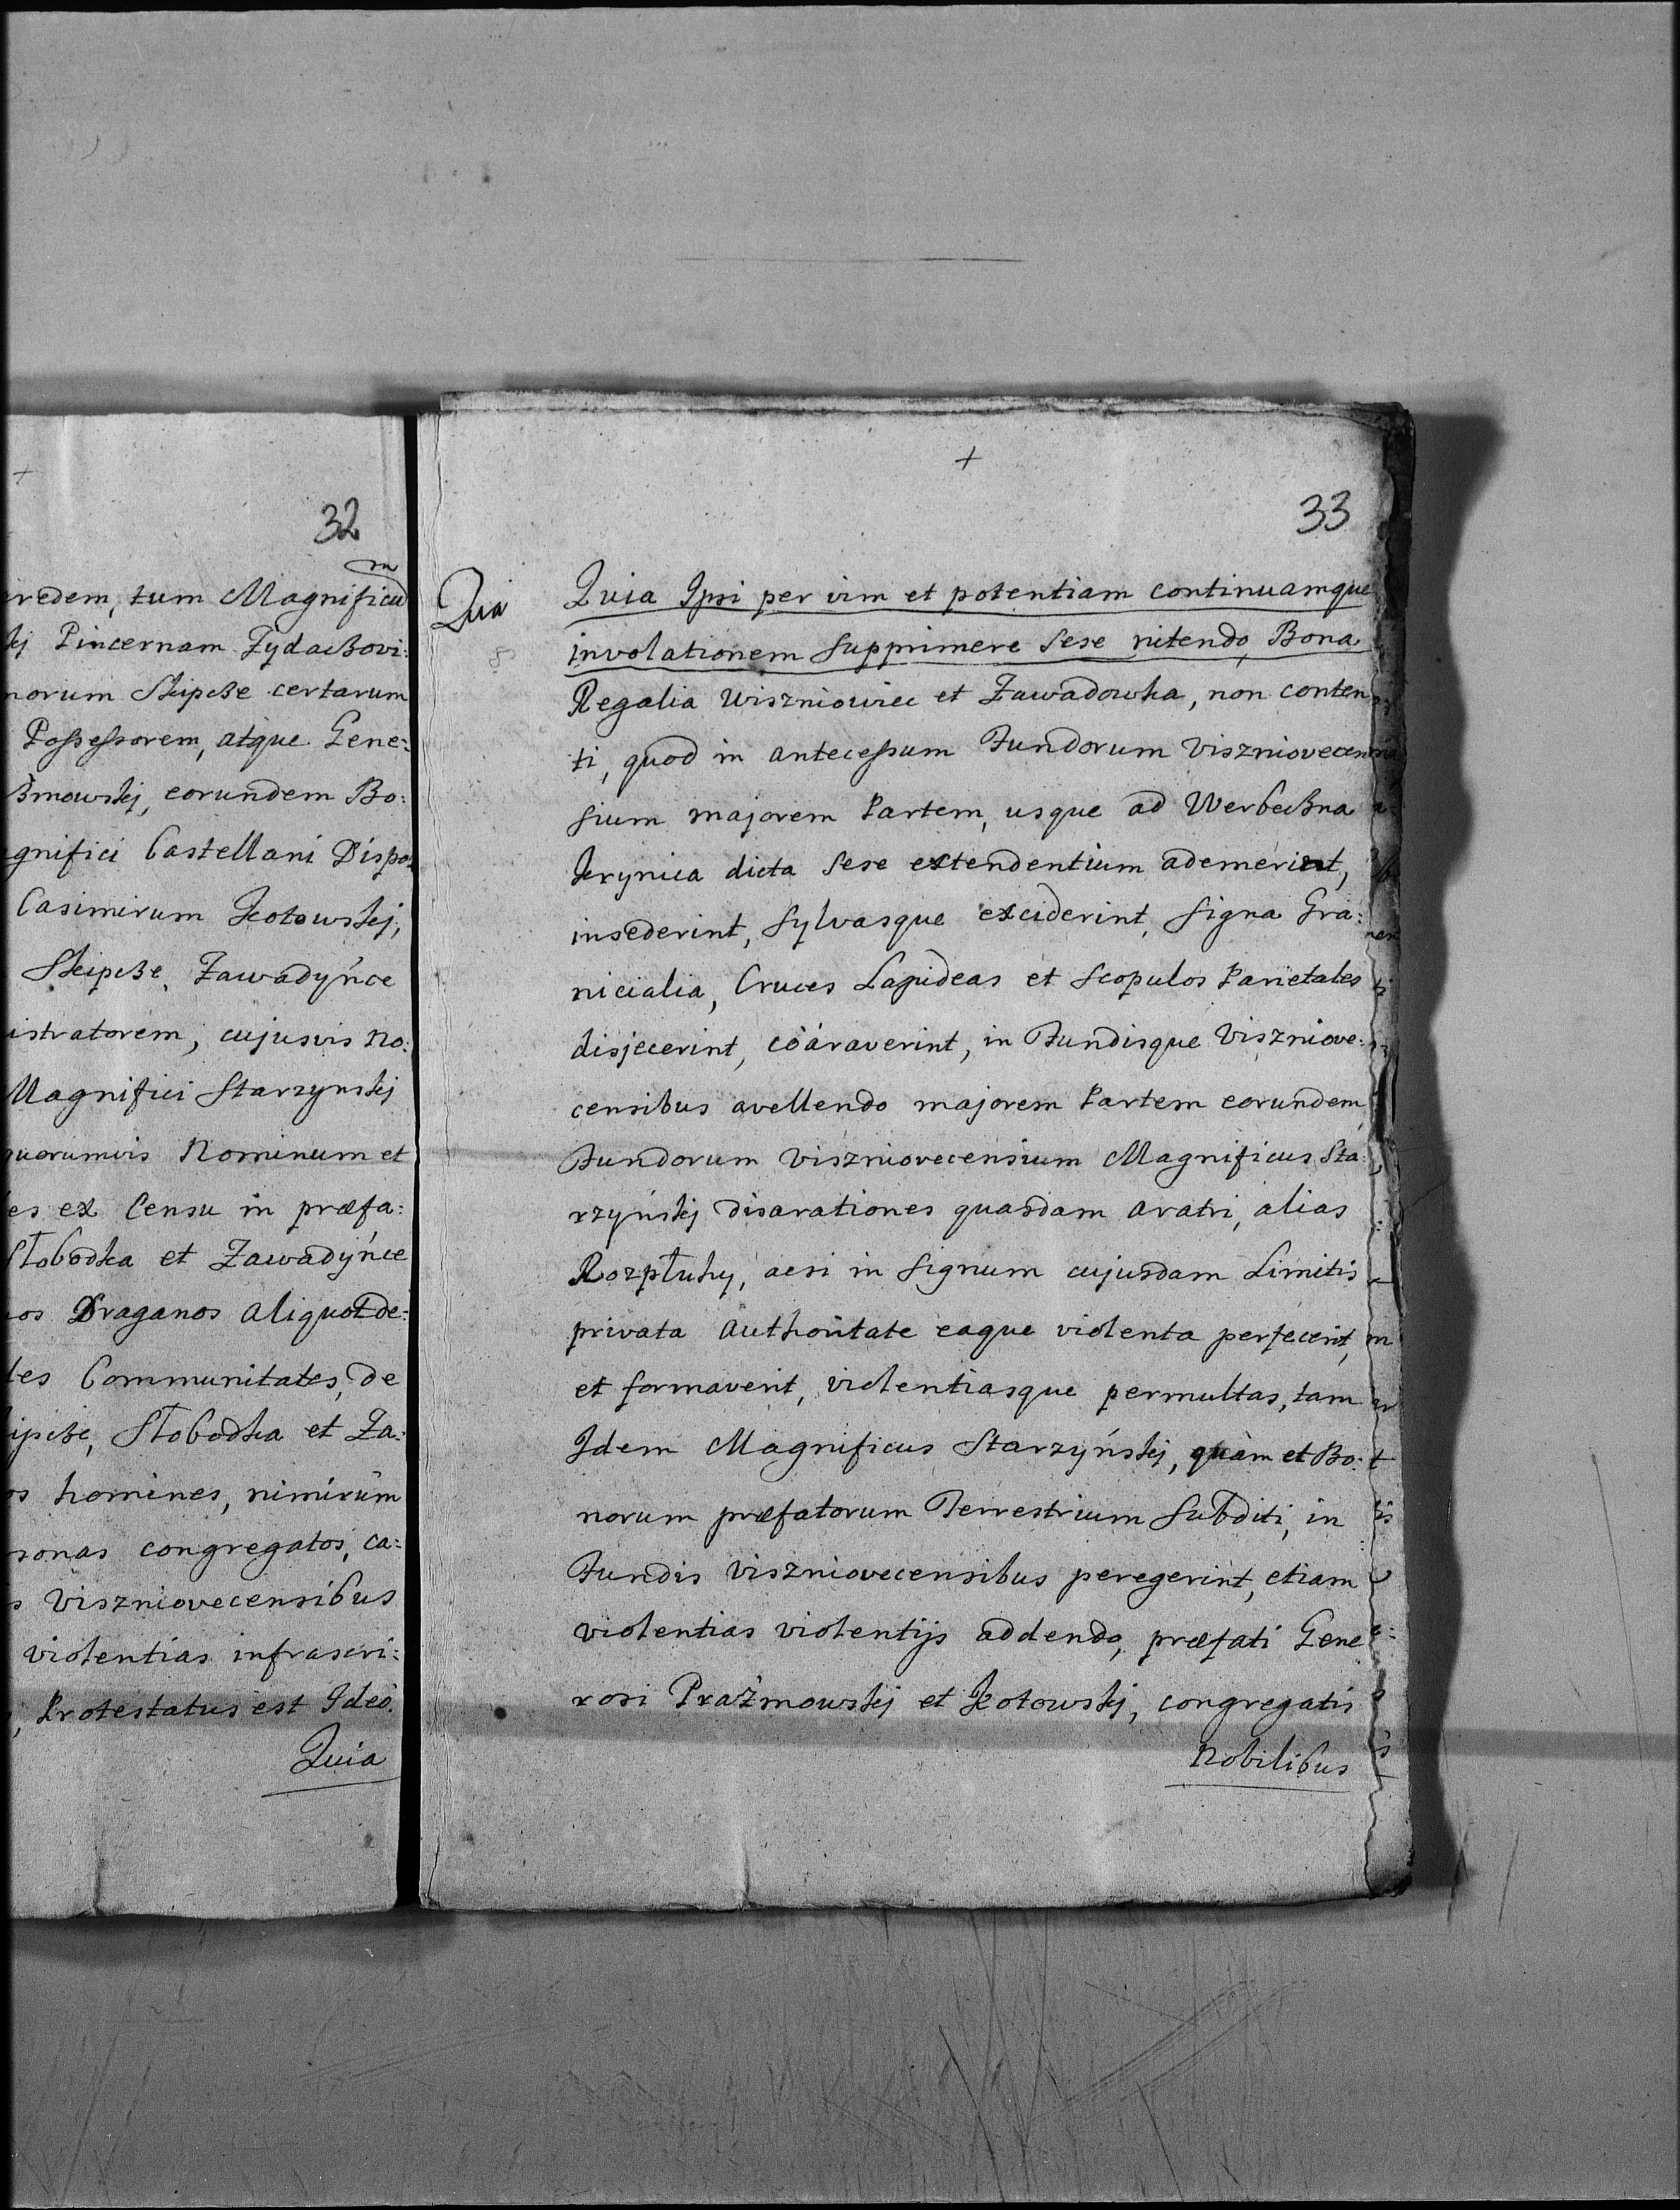 32
eredem, tum Magnificum
kj Pincernam Zydaczovi:
norum Skipcze certarum
Possessorem, atque Gene:
żmowskj, eorundem Bo:
gnifici Castellani Dispo:
Casimirum Kotowskj,
Skipcze, Zawadyńce
istratorem, cujusvis no:
Magnifici Starzynskj
quorumvis Nominum et
es ex Censu in præfa:
Słobodka et Zawadyńce
os Draganos aliquot de:
les Communitates, de
ipcze, Słobodka et Za:
os homines, nimirùm
rsonas congregatos, ca:
s Viszniovecensibus
violentias infrascri:
, Protestatus est Ideò.
Quia
+
33
Quia
Quia Ipsi per vim et potentiam continuamque
involationem supprimere sese nitendo, Bona
Regalia Wiszniowiec et Zawadowka, non conten
ti, quod in antecessum Fundorum Viszniovecen
sium majorem Partem, usque ad Werbeczna
Krynica dicta sese extendentium ademerint,
insederint, Sylvasque exciderint, Signa Gra:
nicialia, Cruces Lapideas et Scopulos Parietales
disjecerint, coàraverint, in Fundisque Viszniove:
censibus avellendo majorem Partem eorundem
Fundorum Viszniovecensium Magnificus Sta:
rzyńskj disarationes quasdam aratri, alias
Rozpłuhy, acsi in Signum cujusdam Limitis
privata Authoritate eaque violenta perfecerit,
et formaverit, violentiasque permultas, tam
Idem Magnificus Starzyńskj, quàm et Bo:
norum præfatorum Terrestrium Subditi, in
Fundis Viszniovecensibus peregerint, etiam
violentias violentijs addendo, præfati Gene
rosi Prażmowskj et Kotowskj, congregatis
Nobilibus